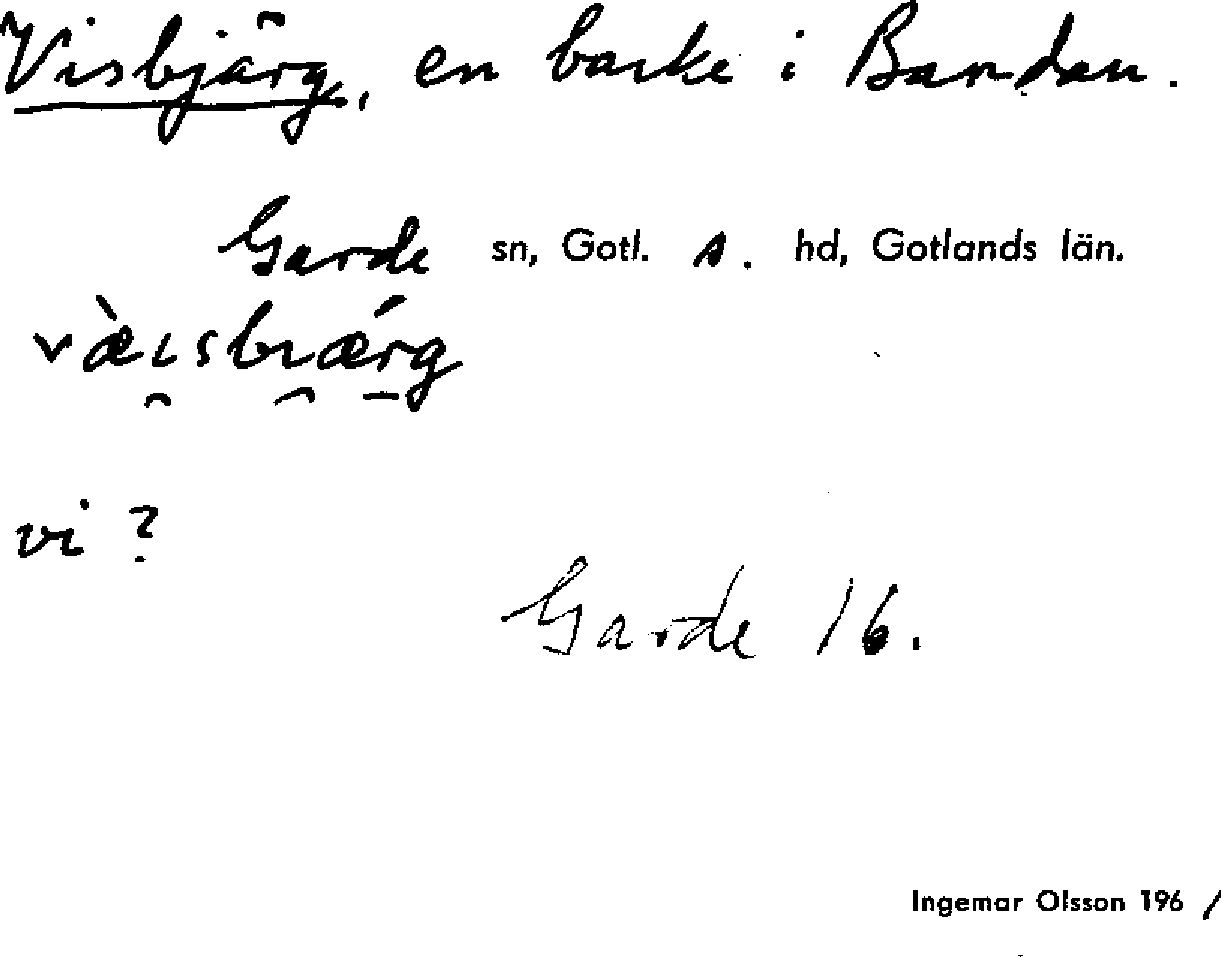 Visbjärg, en backe i Bandan.
Garde sn, Gotl. s. hd, Gotlands län.
væ̀ɩ̯sbɩ̯ǽrg
vi?
Garde 16.
Ingemar Olsson 1961